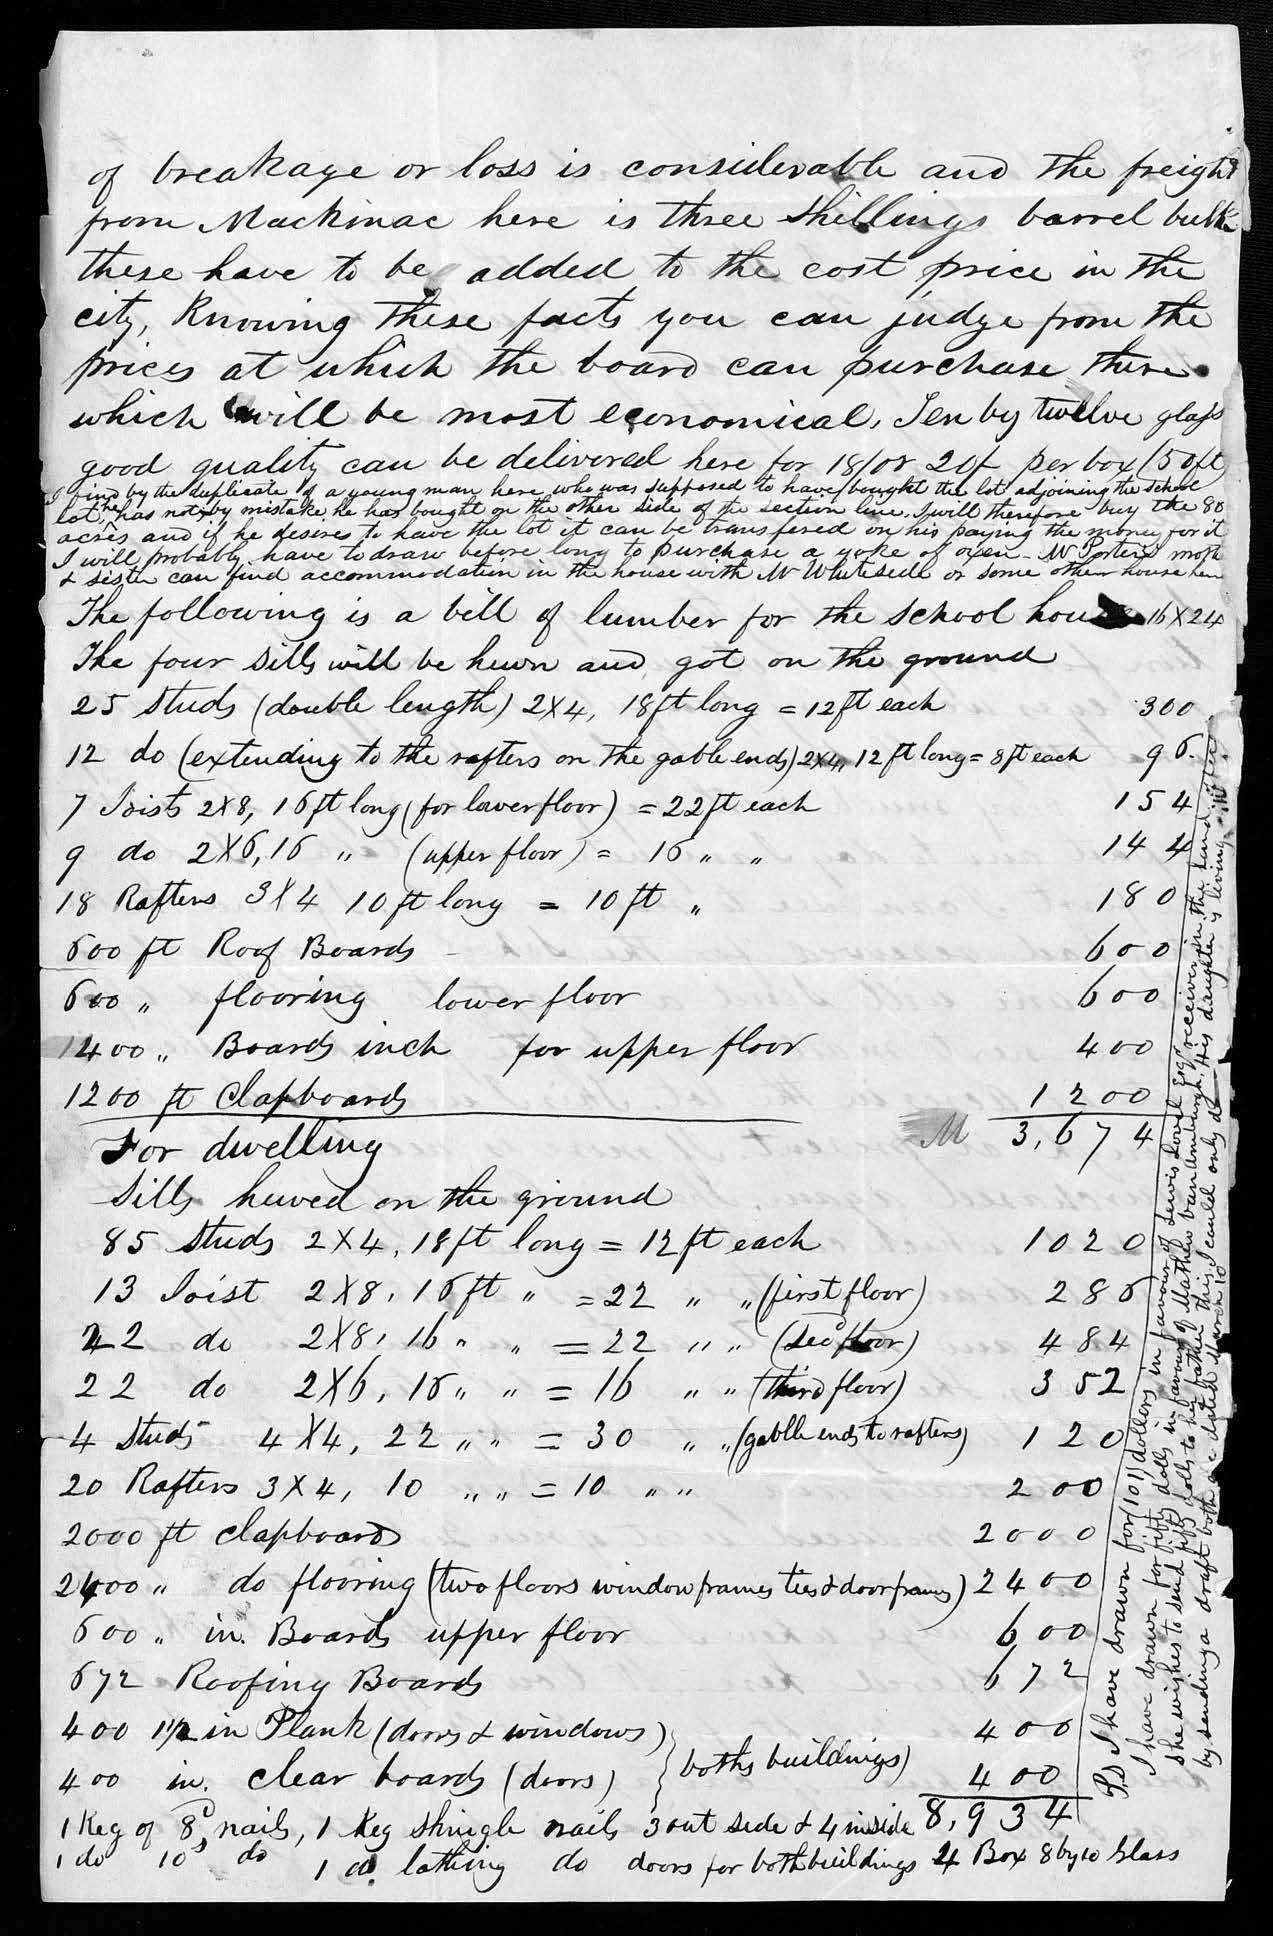 of breakage or loss is considerable and the freight
from Mackinac here is three shillings barrel bulk
these have to be added to the cost price in the
city, Knowing these facts you can judge from the
prices at which the board can purchase there
which will be most economical, Ten by twelve glass
good quality can be delivered here for 18/ or 20/ per box (50ft
I find by the duplicate of a young man here who was supposed to have bought the lot adjoining the school
lot he has not by mistake he has bought on the other side of the section line. I will therefore buy the 80
acres and if he desires to have the lot it can be transfered on his paying the money for it
I will probably have to draw before long to purchase a yoke of oxen - Mr Porters moth
& sister can find accommodation in the house with Mr Whiteside or some other house here
The following is a bill of lumber for the School house 16X24
The four sills will be hewn and got on the ground
25 Studs (double length) 2X4, 18ft long = 12ft each 300
12 do (extending to the rafters on the gable ends) 2X4, 12ft long = 8ft each 96.
7 Joists 2X8, 16ft long (for lower floor) = 22ft each 154
9 do 2X6, 16 " (upper floor) = 16 " " 144
18 Rafters 3X4 10ft long = 10ft " 180
600 ft Roof Boards 600
600 " flooring lower floor 600
400 " Boards inch for upper floor 400
1200 ft Clapboards 1200
M 3,674
For dwelling
Sills hewed on the ground
85 Studs 2X4, 18ft long = 12ft each 1020
13 Joist 2X8, 16ft " = 22 " " (first floor) 286
22 do 2X8, 16 " " = 22 " " (Secd floor) 484
22 do 2X6, 16 " " = 16 " " (third floor) 352
4 Studs 4X4, 22 " " = 30 " " (gable ends to rafters) 120
20 Rafters 3X4, 10 " " = 10 " " 200
2000 ft Clapboards 2000
2400 " do flooring (two floors window frames ties & door frames) 2400
600 " in. Boards upper floor 600
672 Roofing Boards 672
400 1½ in Plank (doors & windows) 400
400 in. Clear boards (doors) } boths buildings) 400
8,934
1 Keg of 8d nails, 1 Keg shingle nails 3 out side & 4 inside
1 do 10s do 1 do lathing do doors for both buildings 4 Box 8 by 10 Glass
P.S I have drawn for (101) dollars in favour of Lewis Esqr receiver in the Land
I have drawn for fifty dolls in favour of Mathew Van Amburgh, His daughter is living
She wishes to send fifty dolls to her father this I could only do
by sending a draft both are dated March 10